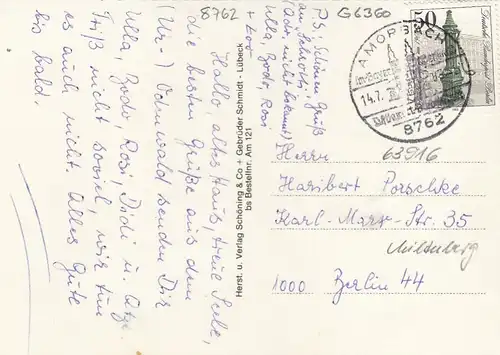 8762
G6360
Hallo, altes Haus, treue Seele,
die besten Grüße aus dem
(Ur-) Odenwald senden Dir
Ulla, Bodo, Rosi, Didi u.
Friß nicht soviel, wir tun
es auch nicht. Alles Gute
bis bald.
P.S. Schönen Gruß
(Adr. nicht bekannt)
Ulla, Bodo, Rosi
Herst. u. Verlag Schöning & Co + Gebrüder Schmidt - Lübeck
bs Bestellnr. Am 121
50
Deutsche Bundespost
AMORBACH
14.7.
8762
Herrn
63916
Haribert Porschke
Karl-Marx-Str. 35
Miltenberg
1000 Berlin 44